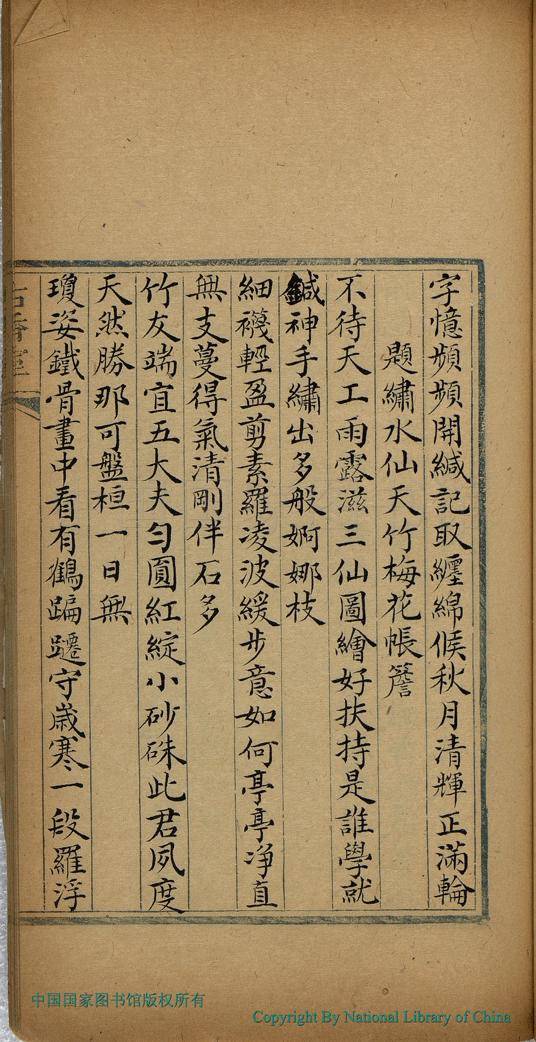 字憶頻頻開緘記取纏綿候秋月清輝正滿輪
題繡水仙天竹梅花帳簷
不待天工雨露滋三仙圖繪好扶持是誰學就
鍼神手繡出多般婀娜枝
細襪輕盈剪素羅凌波緩步意如何亭亭净直
無支蔓得氣清剛伴石多
竹友端宜五大夫勻圓紅綻小砂硃此君夙度
天然勝那可盤桓一日無
瓊姿鐵骨畫中看有鶴蹁躚守歲寒一段羅浮
中国国家图书馆版权所有
Copyright By National Library of China